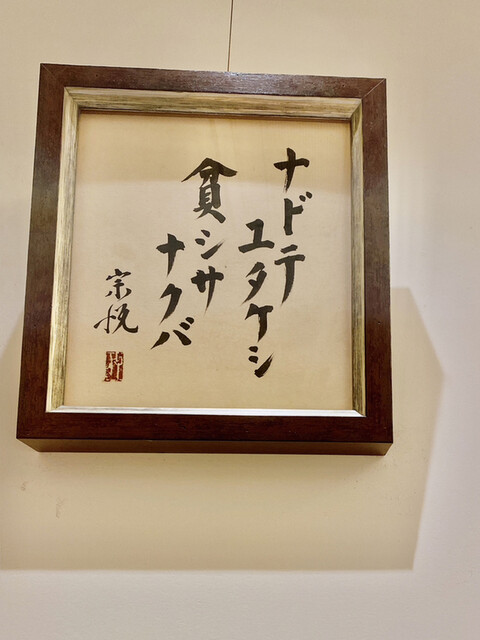 ナドテ
ユタケシ
貧シサ
ナクバ
宗悦